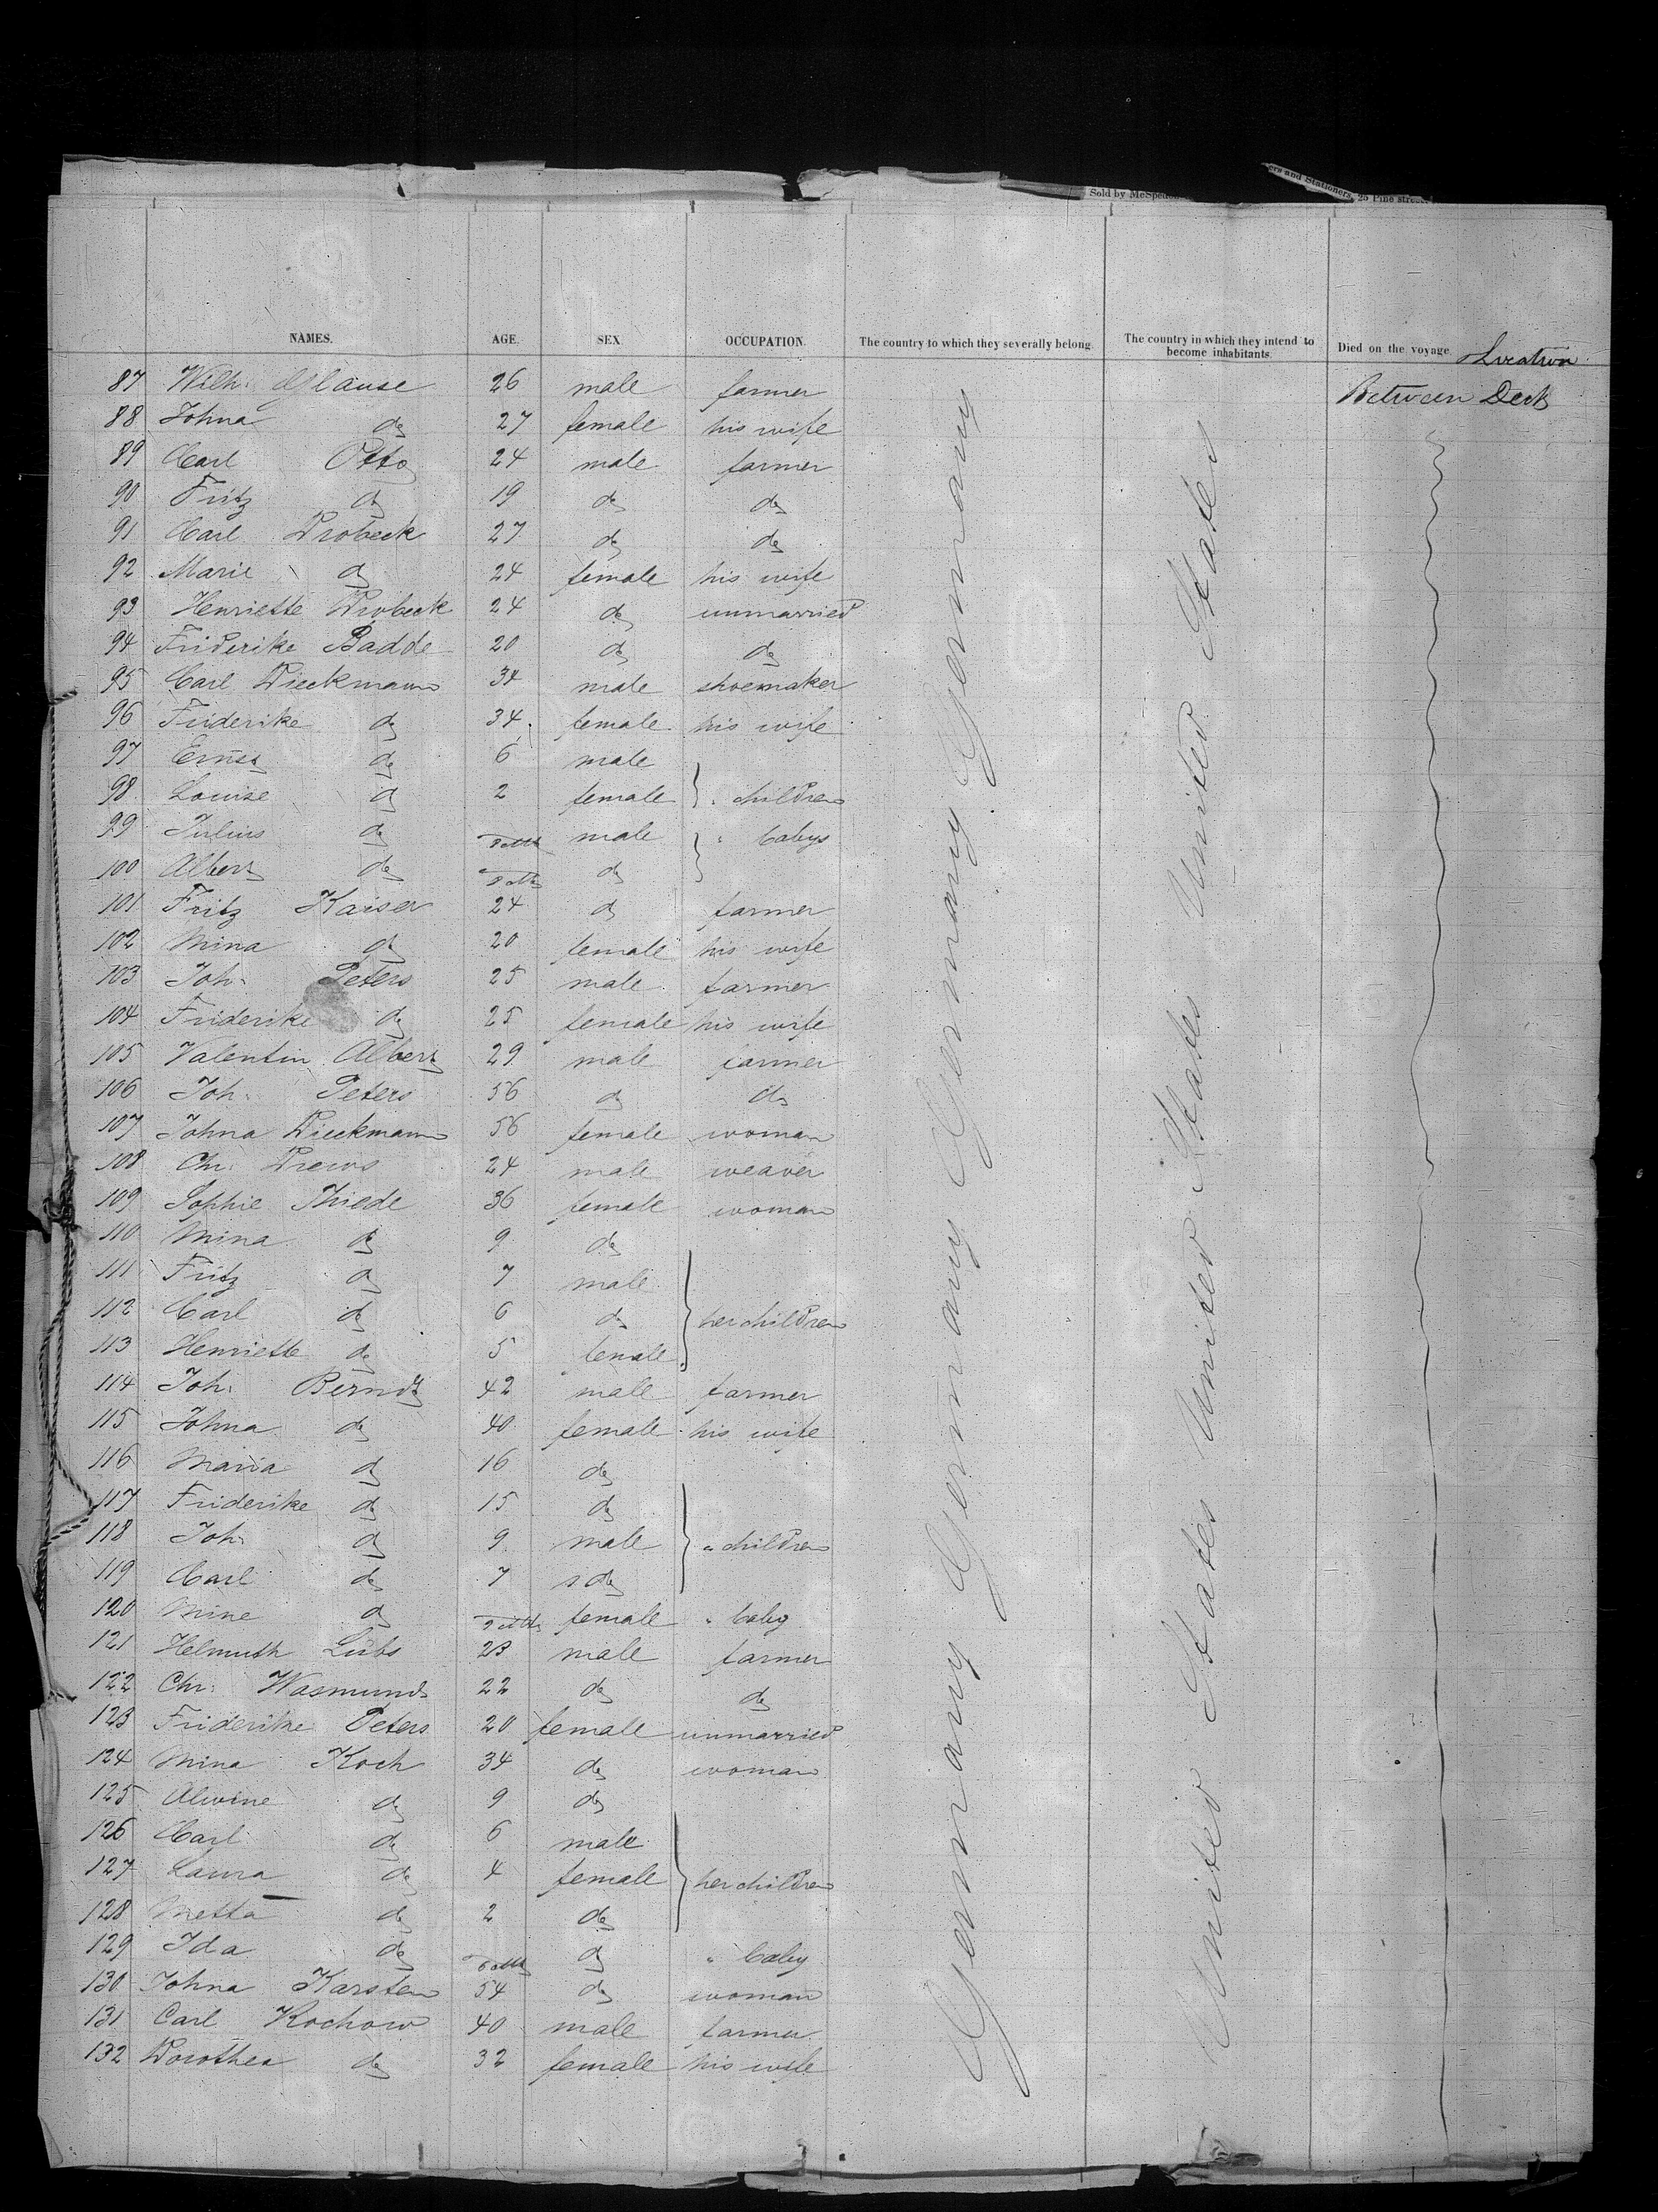 Sold by McSpedon
ers and Stationers, 25 Pine street
NAMES. AGE. SEX OCCUPATION. The country to which they severally belong. The country in which they intend to become inhabitants. Died on the voyage & Location
87 Wilh. Glause 26 male farmer Between Deck
88 Johna do 27 female his wife
89 Carl Otto 24 male farmer
90 Fritz do 19 do do
91 Carl Drobeck 27 do do
92 Marie do 24 female his wife
93 Henriette Drobeck 24 do unmarried
94 Friderike Badde 20 do do
95 Carl Dieckmann 34 male shoemaker
96 Friderike do 34 female his wife
97 Ernst do 6 male
98 Louise do 2 female " children
99 Julius do male " babys
100 Albert do do
101 Fritz Kaiser 24 do farmer
102 Mina do 20 female his wife
103 Joh. Peters 25 male farmer
104 Friderike do 25 female his wife
105 Valentin Albert 29 male farmer
106 Joh. Peters 56 do do
107 Johna Dieckmann 56 female woman
108 Chr. Drews 24 male weaver
109 Sophie Thiede 36 female woman
110 Mina do 9 do
111 Fritz do 7 male
112 Carl do 6 do her children
113 Henriette do 5 female
114 Joh. Berndt 42 male farmer
115 Johna do 40 female his wife
116 Maria do 16 do
117 Friderike do 15 do
118 Joh. do 9 male " children
119 Carl do 7 do
120 Mine do female " baby
121 Helmuth Lübs 23 male farmer
122 Chr. Wasmund 22 do do
123 Friderike Peters 20 female unmarried
124 Mina Koch 34 do woman
125 Alwine do 9 do
126 Carl do 6 male
127 Laura do 4 female her children
128 Metta do 2 do
129 Ida do do " baby
130 Johna Karsten 54 do woman
131 Carl Kochow 40 male farmer
132 Dorothea do 32 female his wife
Germany Germany Germany Germany
United States United States United States